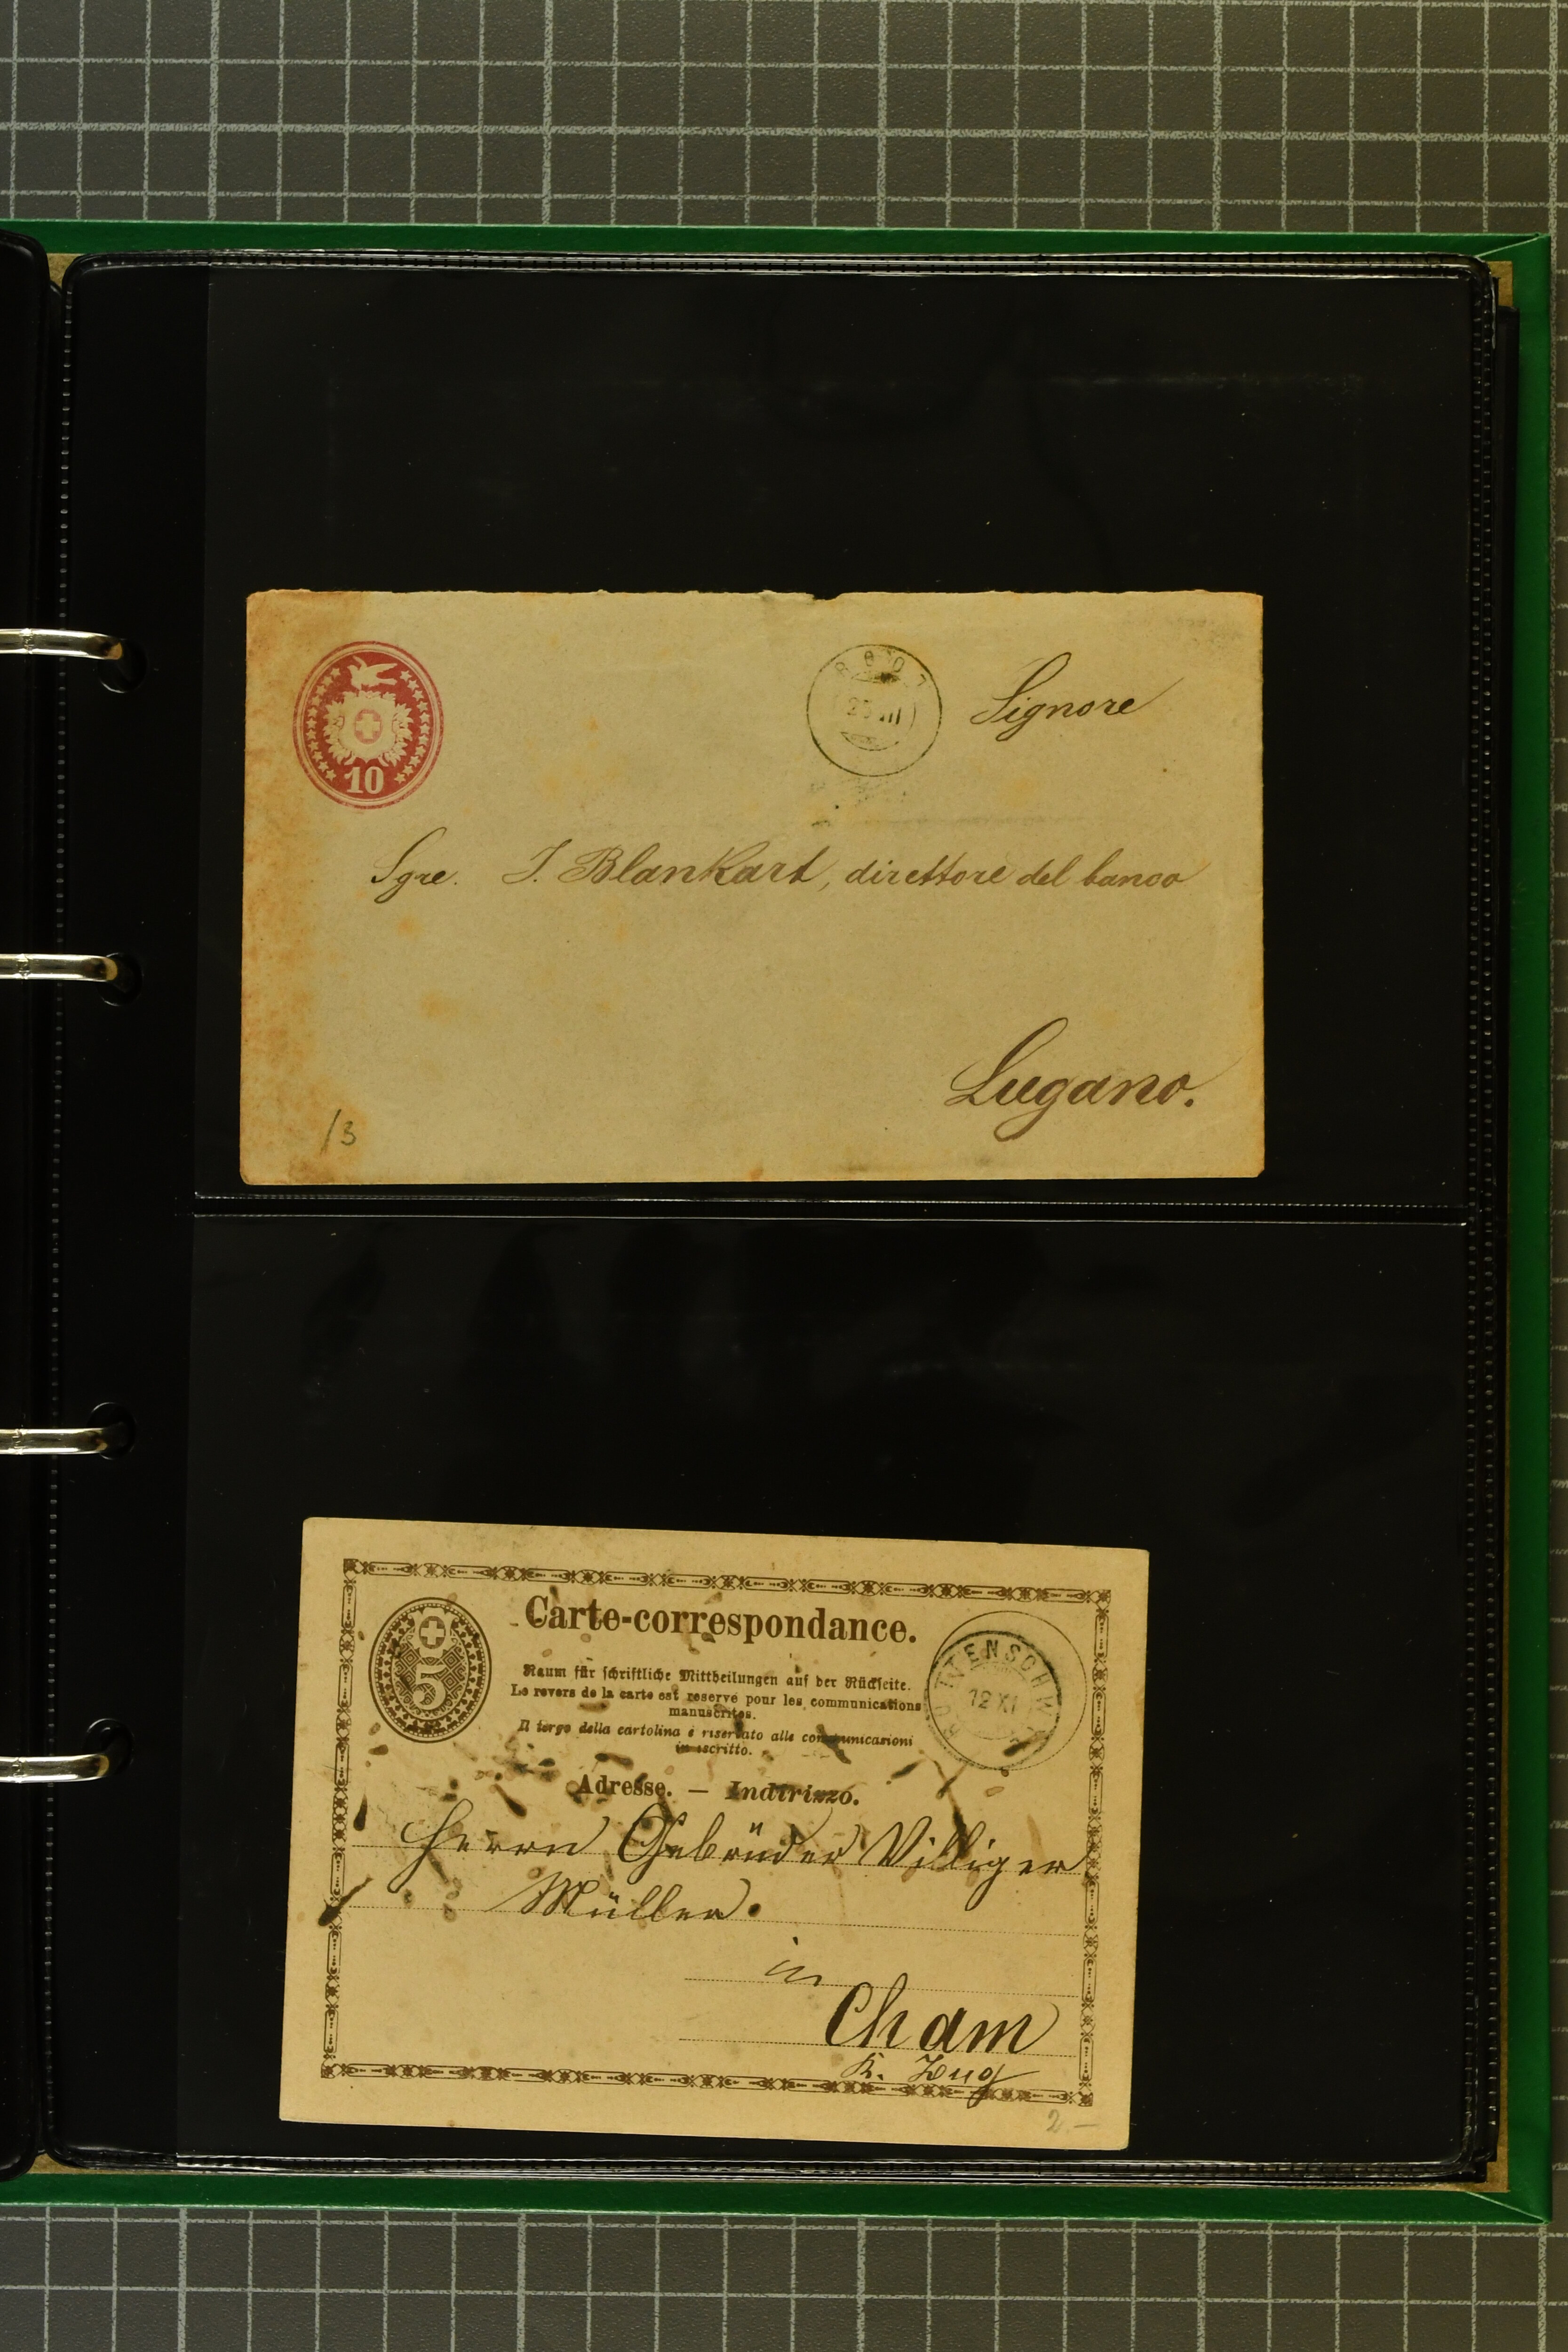 10
ROOT
Signore
Sgre. J. Blankart, direttore del banco
Lugano.
/3
Carte-correspondance.
5
Raum für schriftliche Mittheilungen auf der Rückseite.
Le revers de la carte est reservé pour les communications
manuscrites.
Il tergo della cartolina è riservato alle comunicazioni
in iscritto.
12 XI
Adresse. — Indirizzo.
Herrn Gebrüder Villiger
Müller.
in
Cham
K. Zug
2.—